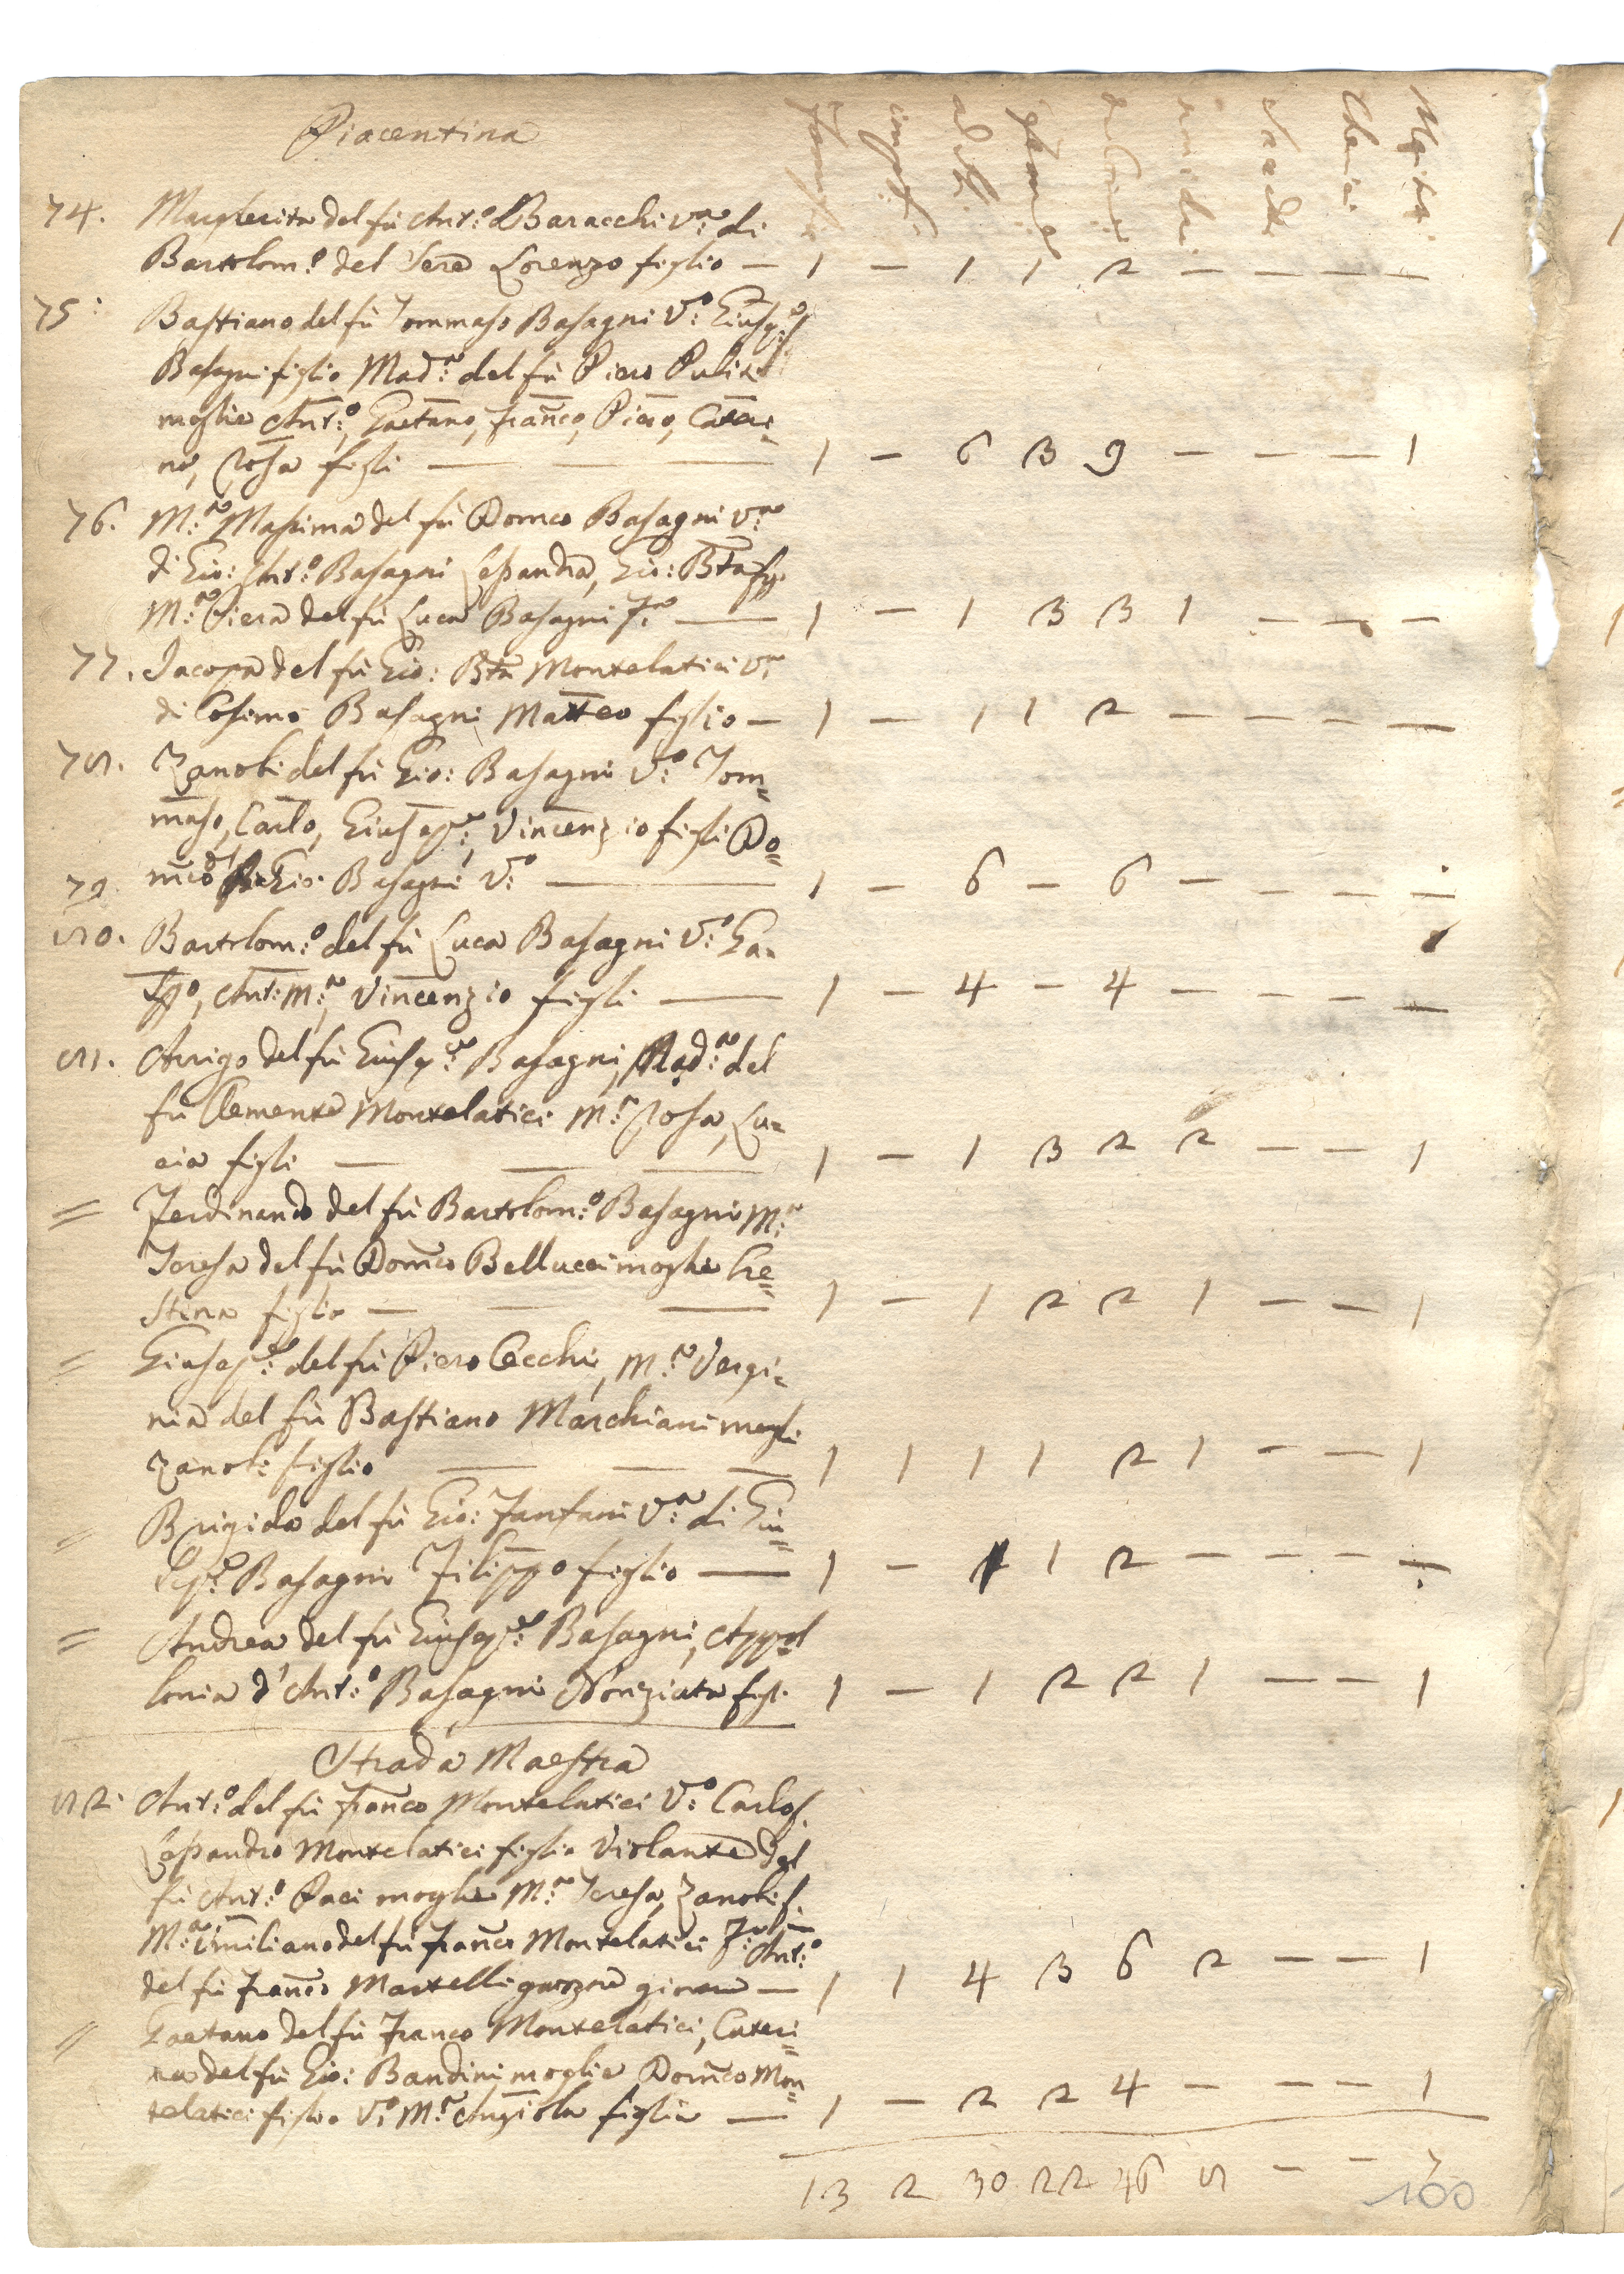 Piacentina
74. Margherita del fù Ant:º Baracchi V:ª di
Bartolom:º del Sere Lorenzo figlio — 1 — 1 1 2 — — — —
75: Bastiano del fù Tommaso Basagni V:º Giusep:e
Basagni figlio Mad:ª del fù Piero Puliti
moglie Ant:º, Gaetano, Franco, Piero, Cateri=
na, Rosa figli — — — 1 — 6 3 9 — — — 1
76. M:ª Massima del fù Domco Basagni V:ª
di Gio: Ant:º Basagni Lessandra, Gio: Bta fg.
M:ª Piera del fù Luca Basagni F:ª — 1 — 1 3 3 1 — — —
77. Jacopa del fù Gio: Bta Montelatici V:ª
di Cosimo Basagni Matteo figlio — 1 — 1 1 2 — — — —
78. Zanobi del fù Gio: Basagni V:º Tom=
maso, Carlo, Giusep:e, Vincenzio figli Do=
79. mco Gio: Basagni V:º — 1 — 6 — 6 — — — —
80. Bartolom:º del fù Luca Basagni V:º Ga=
Ant:M:ª, Vincenzio figli — 1 — 4 — 4 — — — —
81. Arrigo del fù Giusep:e Basagni, Mad:ª del
fù Clemente Montelatici M:ª Rosa, Lu=
cia figli — — — 1 — 1 3 2 2 — — 1
= Ferdinando del fù Bartolom:º Basagni M:ª
Teresa del fù Domco Bellucci moglie Cre=
stina figlia — — — 1 — 1 2 2 1 — — 1
= Giusep:e del fù Piero Cecchi, M:ª Vergi=
nia del fù Bastiano Marchiani mogli
Zanobi figlio — — — 1 1 1 1 2 1 — — 1
= Brigida del fù Gio: Fanfani V:ª di Giu=
sep:e Basagni Filippo figlio — 1 — 1 1 2 — — — —
= Andrea del fù Giusep:e Basagni, Appol
lonia d'Ant:º Basagni Nunziata figli 1 — 1 2 2 1 — — 1
Strada Maestra
82. Ant:º del fù Franco Montelatici V:º Carlo f.
Lessandro Montelatici figlio Violante del
fù Ant:º Paci moglie M:ª Teresa, Zanobi f.
M:ª Emiliano del fù Franco Montelatici Ant:º
del fù Franco Martelli garzone giovane — 1 1 4 3 6 2 — — 1
= Gaetano del fù Franco Montelatici, Cateri=
na del fù Gio: Bandini moglie Domco Mon=
telatici figlio V:º M:ª Angiola figlia — 1 — 2 2 4 — — — 1
13 2 30 22 46 8 — — 7
100